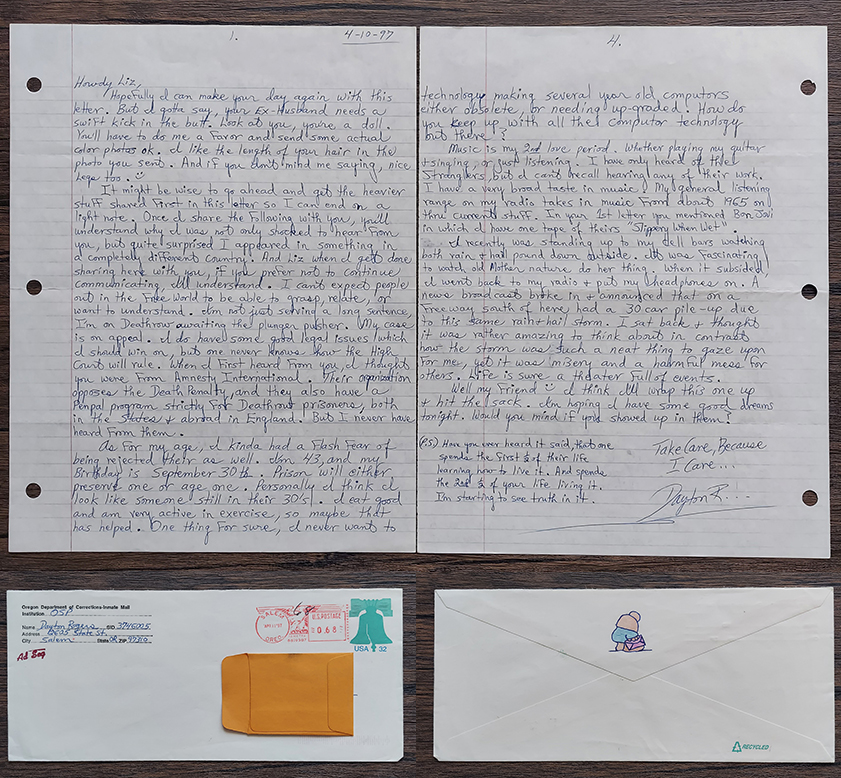 1.
4-10-97
Howdy Liz,
Hopefully I can make your day again with this
letter. But I gotta say, your Ex-Husband needs a
swift kick in the butt. Look at you, you're a doll.
You'll have to do me a Favor and send some actual
color photos ok. I like the length of your hair in the
photo you sent. And if you don't mind me saying, nice
legs too.
It might be wise to go ahead and get the heavier
stuff shared First in this letter so I can end on a
light note. Once I share the Following with you, you'll
understand why I was not only shocked to hear From
you, but quite surprised I appeared in something in
a completely different Country. And Liz when I get done
sharing here with you, if you prefer not to continue
communicating, I'll understand. I can't expect people
out in the Free World to be able to grasp, relate, or
want to understand. I'm not just serving a long sentence,
I'm on Deathrow awaiting the plunger pusher. My case
is on appeal. I do have some good legal issues which
I should win on, but one never knows how the High
Court will rule. When I First heard From you, I thought
you were From Amnesty International. Their organization
opposes the Death Penalty, and they also have a
Penpal program strictly For Deathrow prisoners, both
in the States & abroad in England. But I never have
heard From them.
As For my age, I kinda had a Flash Fear of
being rejected their as well. I'm 43, and my
Birthday is September 30th. Prison will either
preserve one or age one. Personally I think I
look like someone still in their 30's. I eat good
and am very active in exercise, so maybe that
has helped. One thing For sure, I never want to
4.
technology making several year old computors
either obsolete, or needing up-graded. How do
you keep up with all the computor technology
out there?
Music is my 2nd love period. Whether playing my guitar
+ singing or just listening. I have only heard of the
Stranglers but I can't recall hearing any of their work.
I have a very broad taste in music! My general listening
range on my radio takes in music From about 1965 on
thru current stuff. In your 1st letter you mentioned Bon Jovi
in which I have one tape of theirs "Slippery When Wet".
I recently was standing up to my cell bars watching
both rain & hail pound down outside. It was fascinating
to watch old Mother nature do her thing. When it subsided
I went back to my radio & put my headphones on. A
news broadcast broke in & announced that on a
Freeway south of here had a 30 car pile-up due
to this same rain & hail storm. I sat back & thought
it was rather amazing to think about in contrast
how the storm was such a neat thing to gaze upon
For me, yet it was misery and a harmful mess for
others. Life is sure a theater Full of events.
Well my Friend I think I'll wrap this one up
& hit the sack. I'm hoping I have some good dreams
tonight. Would you mind if you showed up in them?
(P.S.) Have you ever heard it said, that one
spends the First ½ of their life
learning how to live it. And spends
the 2nd ½ of your life living it.
I'm starting to see truth in it.
Take Care, Because
I Care...
Dayton R....
Oregon Department of Corrections-Inmate Mail
Institution OSP
Name Dayton Rogers SID 3746005
Address 2605 State St.
City Salem State OR ZIP 97310
Ad Seg
SALEM
OREG
U.S. POSTAGE
0.68
USA 32
RECYCLED